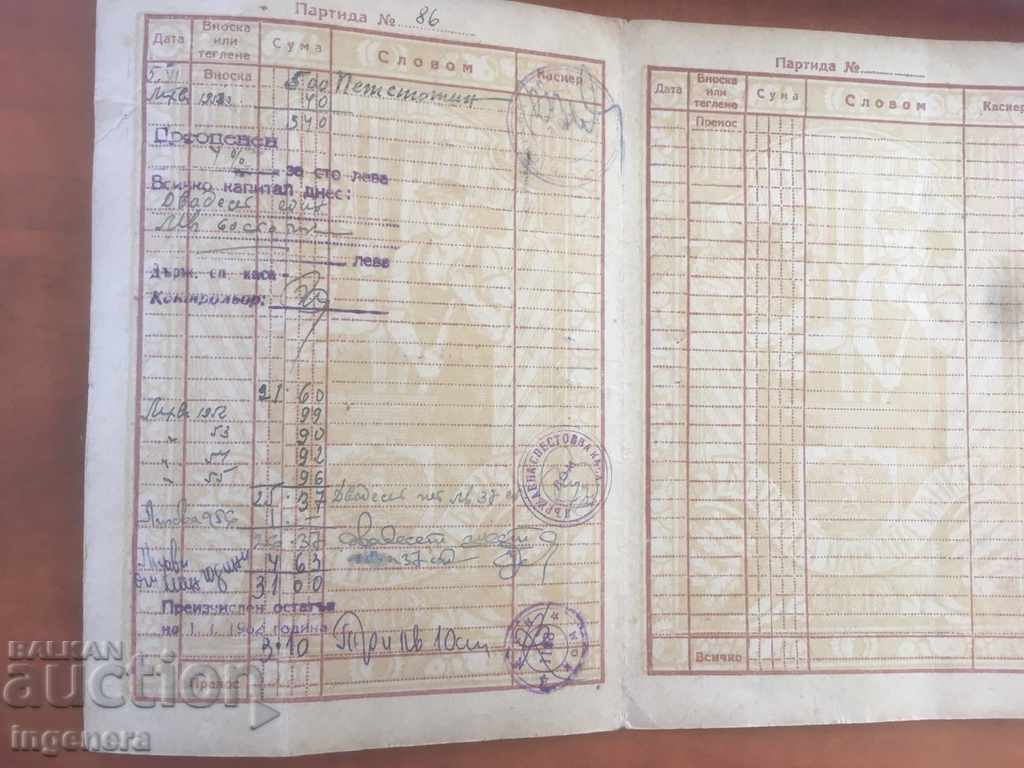 Партида № 86
Дата
Вноска или теглене
Сума
Словом
Касиер
5 VI Вноска 500 Петстотин
Лихв. 40
540
Преоценен
4 % за сто лева
Всичко капитал днес:
Двадесет един
лв 60
лева
Държ. сп. каса
Контрольор:
21 60
Лихв 1952 99
" 53 90
" 54 92
" 55 96
25 37 Двадесет пет лв 37 ст
Лихва 956 1 -
26 37 двадесет шест
37 ст
Лихви 4 63
31 00
Преизчислен остатък
на 1.1.1962 година
3 10 Три лв 10 ст
Пренос
ДЪРЖАВНА СПЕСТОВНА КАСА
Партида №
Дата
Вноска или теглене
Сума
Словом
Касиер
Пренос
Всичко
BALKAN
auction
ingenera